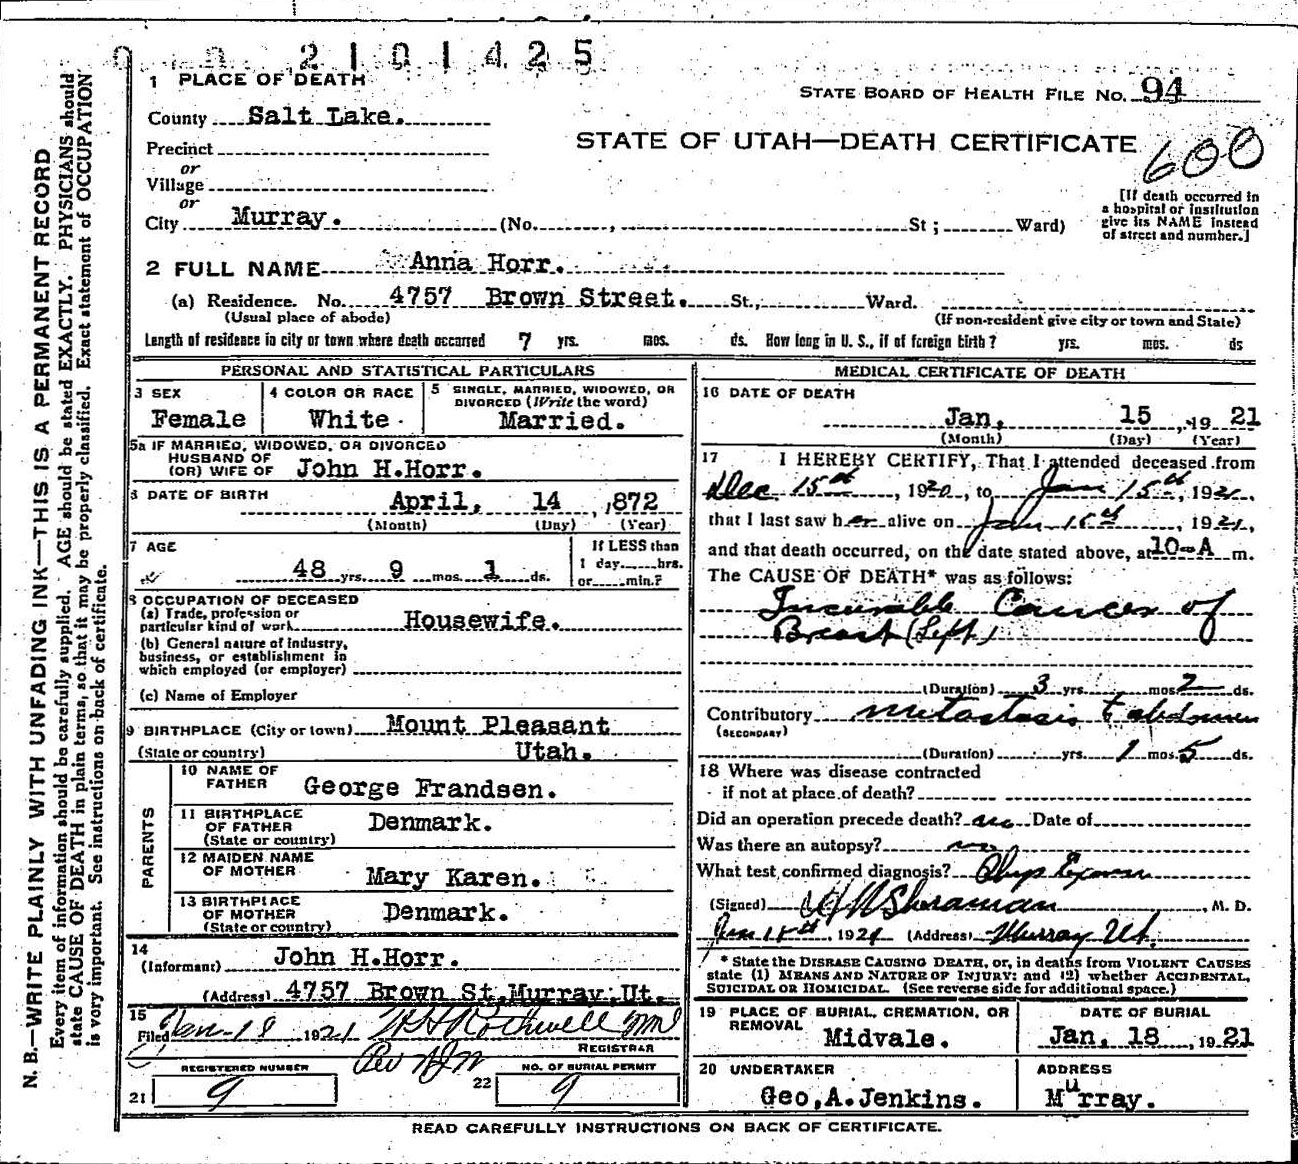 2101425
1 PLACE OF DEATH
STATE BOARD OF HEALTH FILE NO. 94
County Salt Lake.
STATE OF UTAH—DEATH CERTIFICATE
600
Precinct
or
Village
or
City Murray. (No. , St ; Ward)
[If death occurred in
a hospital or institution
give its NAME instead
of street and number.]
2 FULL NAME Anna Horr.
(a) Residence. No. 4757 Brown Street. St., Ward.
(Usual place of abode) (If non-resident give city or town and State)
Length of residence in city or town where death occurred 7 yrs. mos. ds. How long in U. S., if of foreign birth? yrs. mos. ds
PERSONAL AND STATISTICAL PARTICULARS
3 SEX
Female
4 COLOR OR RACE
White
5 SINGLE, MARRIED, WIDOWED, OR
DIVORCED (Write the word)
Married.
5a IF MARRIED, WIDOWED, OR DIVORCED
HUSBAND OF
(OR) WIFE OF John H.Horr.
6 DATE OF BIRTH
April, 14 ,872
(Month) (Day) (Year)
7 AGE
48 yrs. 9 mos. 1 ds.
If LESS than
1 day hrs.
or min.?
8 OCCUPATION OF DECEASED
(a) Trade, profession or
particular kind of work Housewife.
(b) General nature of industry,
business, or establishment in
which employed (or employer)
(c) Name of Employer
9 BIRTHPLACE (City or town) Mount Pleasant
(State or country) Utah.
PARENTS
10 NAME OF
FATHER George Frandsen.
11 BIRTHPLACE
OF FATHER Denmark.
(State or country)
12 MAIDEN NAME
OF MOTHER Mary Karen.
13 BIRTHPLACE
OF MOTHER Denmark.
(State or country)
14
(Informant) John H.Horr.
(Address) 4757 Brown St,Murray,Ut.
15
Filed Jan-18 1921 Rothwell
REGISTRAR
REGISTERED NUMBER
21 9
NO. OF BURIAL PERMIT
22 9
MEDICAL CERTIFICATE OF DEATH
16 DATE OF DEATH
Jan, 15 ,19 21
(Month) (Day) (Year)
17 I HEREBY CERTIFY, That I attended deceased from
Dec 15th, 1920, to Jan 15th, 1921,
that I last saw her alive on Jan 15th, 1921,
and that death occurred, on the date stated above, at 10-A m.
The CAUSE OF DEATH* was as follows:
Incurable Cancer of
Breast (Left)
(Duration) 3 yrs. mos. 2 ds.
Contributory metastasis abdomen
(SECONDARY)
(Duration) yrs. 1 mos. 5 ds.
18 Where was disease contracted
if not at place of death?
Did an operation precede death? no Date of
Was there an autopsy? no
What test confirmed diagnosis? Phys Exam
(Signed) , M. D.
Jan 18th, 1921 (Address) Murray Ut.
* State the DISEASE CAUSING DEATH, or, in deaths from VIOLENT CAUSES
state (1) MEANS AND NATURE OF INJURY; and (2) whether ACCIDENTAL,
SUICIDAL OR HOMICIDAL. (See reverse side for additional space.)
19 PLACE OF BURIAL, CREMATION, OR
REMOVAL Midvale.
DATE OF BURIAL
Jan, 18 , 19 21
20 UNDERTAKER
Geo,A.Jenkins.
ADDRESS
Murray.
READ CAREFULLY INSTRUCTIONS ON BACK OF CERTIFICATE.
N. B.—WRITE PLAINLY WITH UNFADING INK—THIS IS A PERMANENT RECORD
Every item of information should be carefully supplied. AGE should be stated EXACTLY. PHYSICIANS should
state CAUSE OF DEATH in plain terms, so that it may be properly classified. Exact statement of OCCUPATION
is very important. See instructions on back of certificate.